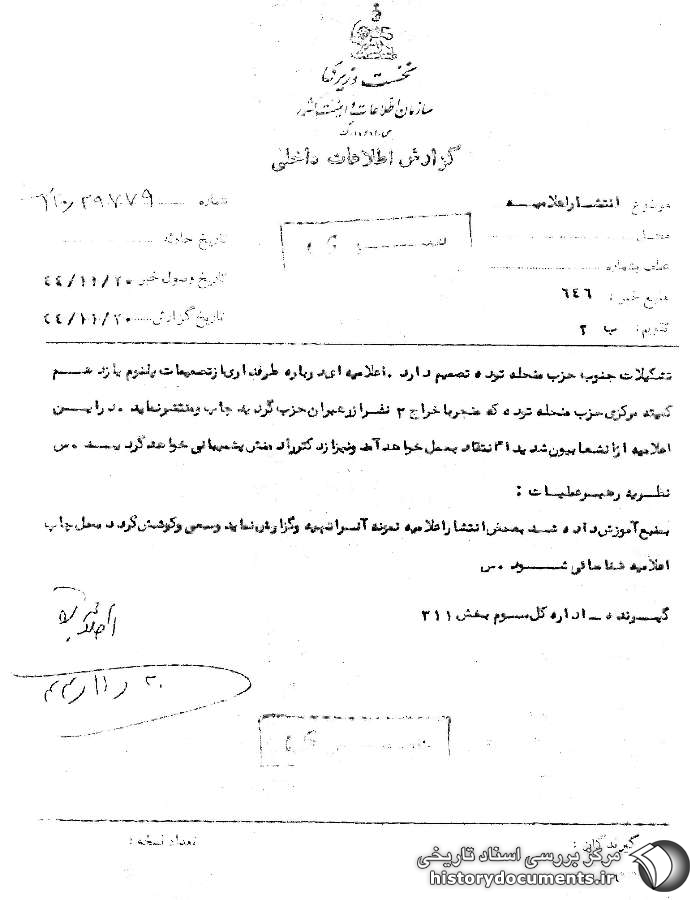 نخست وزیری
سازمان اطلاعات و امنیت کشور
س.ا.و.ا.ک
گزارش اطلاعات داخلی
موضوع انتشار اعلامیه
شماره
محل
تاریخ حادثه
عطف بشماره
تاریخ وصول خبر ۴۴/۱۱/۲۰
منبع خبر : ۶۴۶
تاریخ گزارش ۴۴/۱۱/۲۰
تقویم : ب ۲
تشکیلات جنوب حزب منحله توده تصمیم دارد . اعلامیه ای درباره طرفداری از تصمیمات پلنوم یازدهم
کمیته مرکزی حزب منحله توده که منجر باخراج ۲ نفر از رهبران حزب گردید چاپ و منتشر نماید . در این
اعلامیه از انشعابیون شدیدا" انتقاد بعمل خواهد آمد و نیز از دکتر رادمنش پشتیبانی خواهد گردید . س
نظریه رهبر عملیات :
بمنبع آموزش داده شد بمحض انتشار اعلامیه نمونه آنرا تهیه و گزارش نماید و سعی و کوشش گردد محل چاپ
اعلامیه شناسائی شود . س
گیرنده ـ اداره کل سوم بخش ۳۱۱
۲۰ ر ۱۱ ر ۴۴
گیرندگان :
تعداد نسخه :
مرکز بررسی اسناد تاریخی
historydocuments.ir